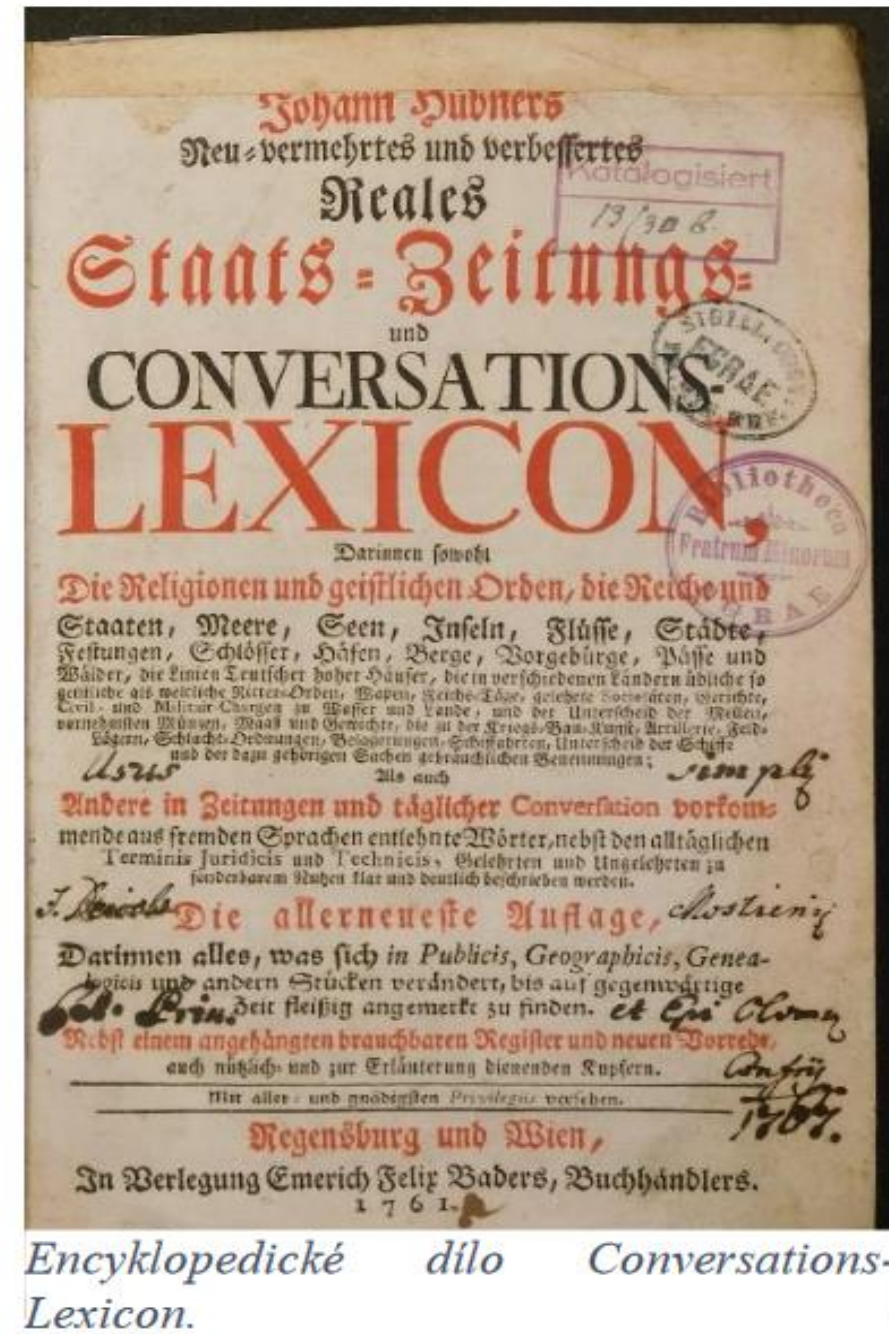 Johann Hübners
Neu-vermehrtes und verbessertes
Reales
Staats-Zeitungs-
und
CONVERSATIONS-
LEXICON,
Darinnen sowohl
Die Religionen und geistlichen Orden, die Reiche und
Staaten, Meere, Seen, Inseln, Flüsse, Städte,
Festungen, Schlösser, Häfen, Berge, Vorgebürge, Pässe und
Wälder, die Linien Teutscher hoher Häuser, die in verschiedenen Ländern übliche so
geistliche als weltliche Ritter-Orden, Wapen, Reichs-Täge, gelehrte Societäten, Gerichte,
Civil- und Militar-Chargen zu Wasser und Lande, und der Unterscheid der Meilen,
vornehmsten Münzen, Maaß und Gewichte, die zu der Kriegs-Bau-Kunst, Artillerie, Feld-
Lägern, Schlacht-Ordnungen, Belagerungen, Schiffahrten, Unterscheid der Schiffe
und der dazu gehörigen Sachen gebräuchlichen Benennungen;
Usus
simplij
Als auch
Andere in Zeitungen und täglicher Conversation vorkom-
mende aus fremden Sprachen entlehnte Wörter, nebst den alltäglichen
Terminis Juridicis und Technicis, Gelehrten und Ungelehrten zu
sonderbarem Nutzen klar und deutlich beschrieben werden.
Die allerneueste Auflage,
Darinnen alles, was sich in Publicis, Geographicis, Genea-
logicis und andern Stücken verändert, bis auf gegenwärtige
Zeit fleißig angemerkt zu finden.
Nebst einem angehängten brauchbaren Register und neuen Vorrede,
auch nützlich- und zur Erläuterung dienenden Kupfern.
Mit aller- und gnädigsten Privilegiis versehen.
1767.
Regensburg und Wien,
In Verlegung Emerich Felix Baders, Buchhändlers.
1761.
Katalogisiert
SIGILL.
EGRAE
Bibliotheca
Fratrum Minorum
EGRAE
Encyklopedické dílo Conversations-
Lexicon.